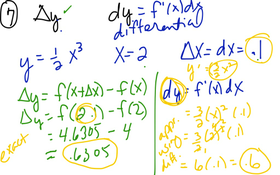 ⑦ Δy ✓ dy = f'(x)dx
differential
y = 1/2 x³ x = 2 Δx = dx = .1
y' = 3/2 x²
Δy = f(x+Δx) - f(x)
Δy = f(2.1) - f(2)
= 4.6305 - 4
= .6305
exact
dy = f'(x) dx
= 3/2 (x)² (.1)
= 3/2 (2)² (.1)
= 6 (.1) = .6
appr.
using
diff.